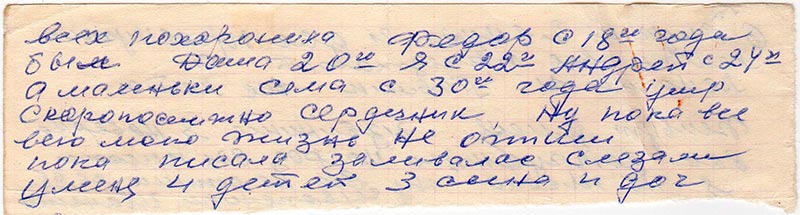 всех похоронила Федор с 18го года
был Даша 20го Я с 22го Андрей с 24го
а маленьки сема с 30го года умр
скоропостижно сердечник, Ну пока все
всю мою жизнь не опиш
пока писала заливалас слезами
у меня 4 детей 3 сына и доч